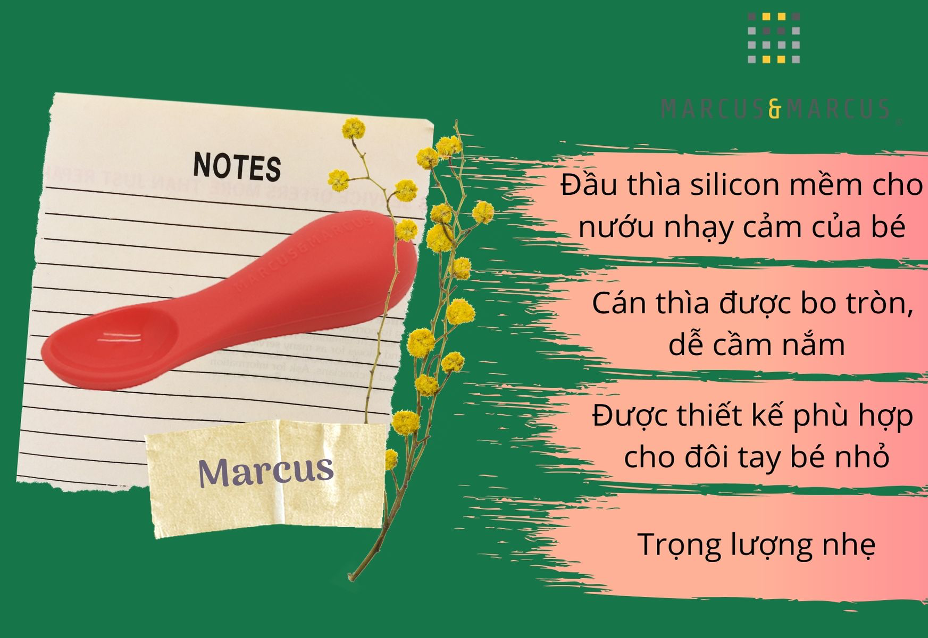 MARCUS&MARCUS
NOTES
Marcus
Đầu thìa silicon mềm cho
nướu nhạy cảm của bé
Cán thìa được bo tròn,
dễ cầm nắm
Được thiết kế phù hợp
cho đôi tay bé nhỏ
Trọng lượng nhẹ